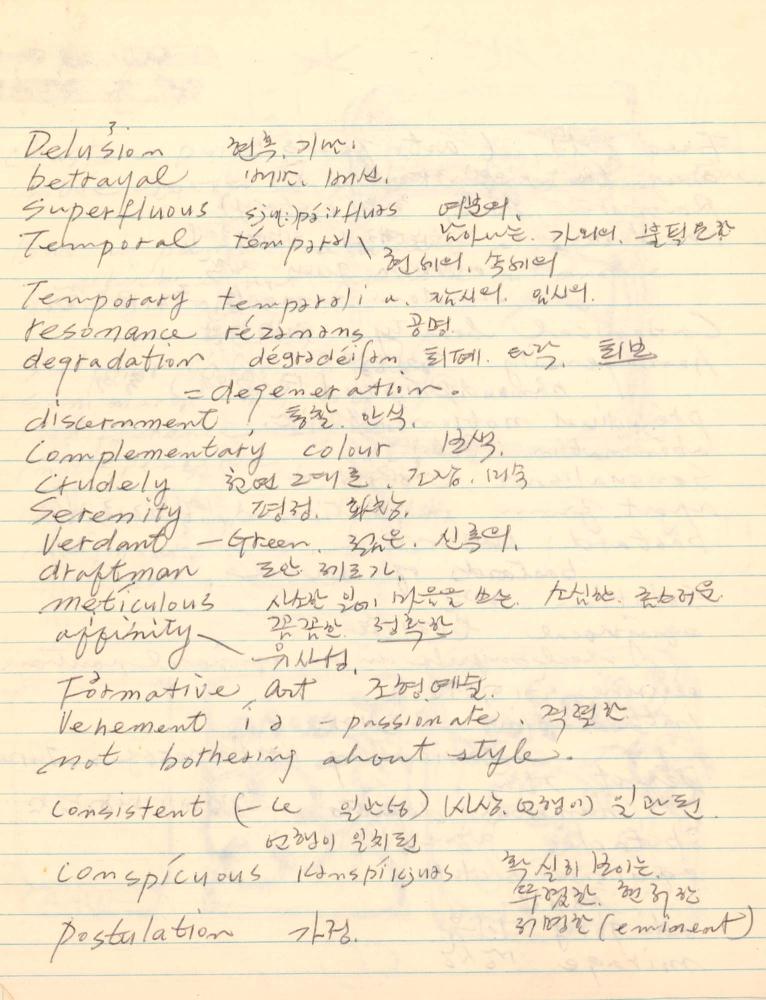 Delusion 현혹. 기만.
betrayal 배반. 배신.
Superfluous sju:pə́rfluəs 여분의.
Temporal témpərəl 남아나는. 가외의. 불필요한
현세의. 속세의
Temporary tempərəli a. 잠시의. 임시의.
resonance rézənəns 공명.
degradation dégrədéiʃən 퇴폐. 타락. 퇴보
= degeneration.
discernment 통찰. 안식.
Complementary colour 보색.
Crudely 천연 그대로. 조잡. 미숙
Serenity 평정. 화창.
Verdant – Green. 젊은. 신록의.
draftman 도안 제도가.
meticulous 사소한 일에 마음을 쓰는. 소심한. 좀스러운.
affinity 꼼꼼한. 정확한
유사성.
Formative Art 조형예술.
Vehement íə – passionate. 격렬한
not bothering about style.
Consistent (– ce 일관성) (사상. 언행이) 일관된.
언행이 일치된
Conspícuous kənspíkjuəs 확실히 보이는.
뚜렷한. 현저한
저명한 (eminent)
Postulation 가정.